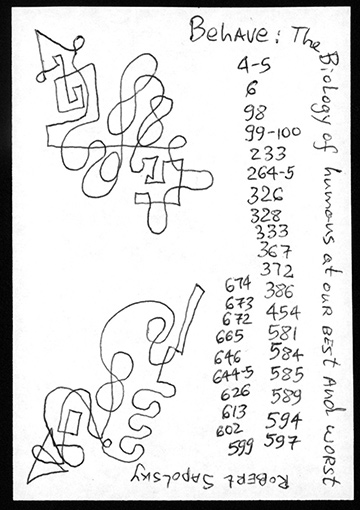 Behave: The Biology of humans at our BEST And worst
4-5
6
98
99-100
233
264-5
326
328
333
367
372
386
454
581
584
585
589
594
597
599
602
613
626
644-5
646
665
672
673
674
Robert Sapolsky